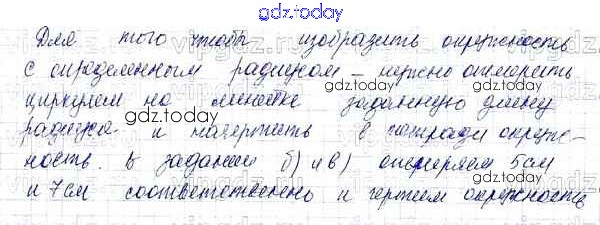 gdz.today
Для того чтобы изобразить окружность
с определенным радиусом – нужно отмерить
gdz.today
циркулем на линейке заданную длину
gdz.today
радиуса и начертить в тетради окруж-
gdz.today
ность. В задании б) и в) отмеряем 5 см
gdz.today
и 7 см соответственно и чертим окружность